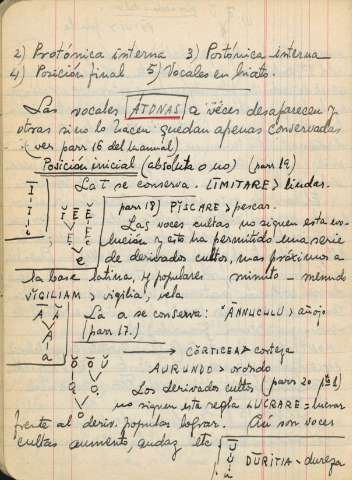 2) Protónica interna 3) Postónica interna
4) Posición final. 5) Vocales en hiato.
Las vocales ÁTONAS a veces desaparecen y
otras si no lo hacen quedan apenas conservadas
(ver parr 16 del Manual)
Posición inicial (absoluta o no) (parr 19)
La Ī se conserva. LĪMITARE > lindar.
parr 18) PĬSCARE > pescar.
Las voces cultas no siguen esta evo-
lución y esto ha permitido una serie
de derivados cultos, mas próximos a
la base latina, y populares minuto - menudo
VĬGILIAM > vigilia, vela
La a se conserva: ANNUCULU > añojo
(parr 17.)
CŎRTICEA > corteja
AURUNDO > orondo
Los derivados cultos (parr 20
no siguen esta regla LUCRARE = lucrar
frente al deriv. popular lograr. Así son voces
cultas aumento, audaz etc
DŪRITIA - dureza